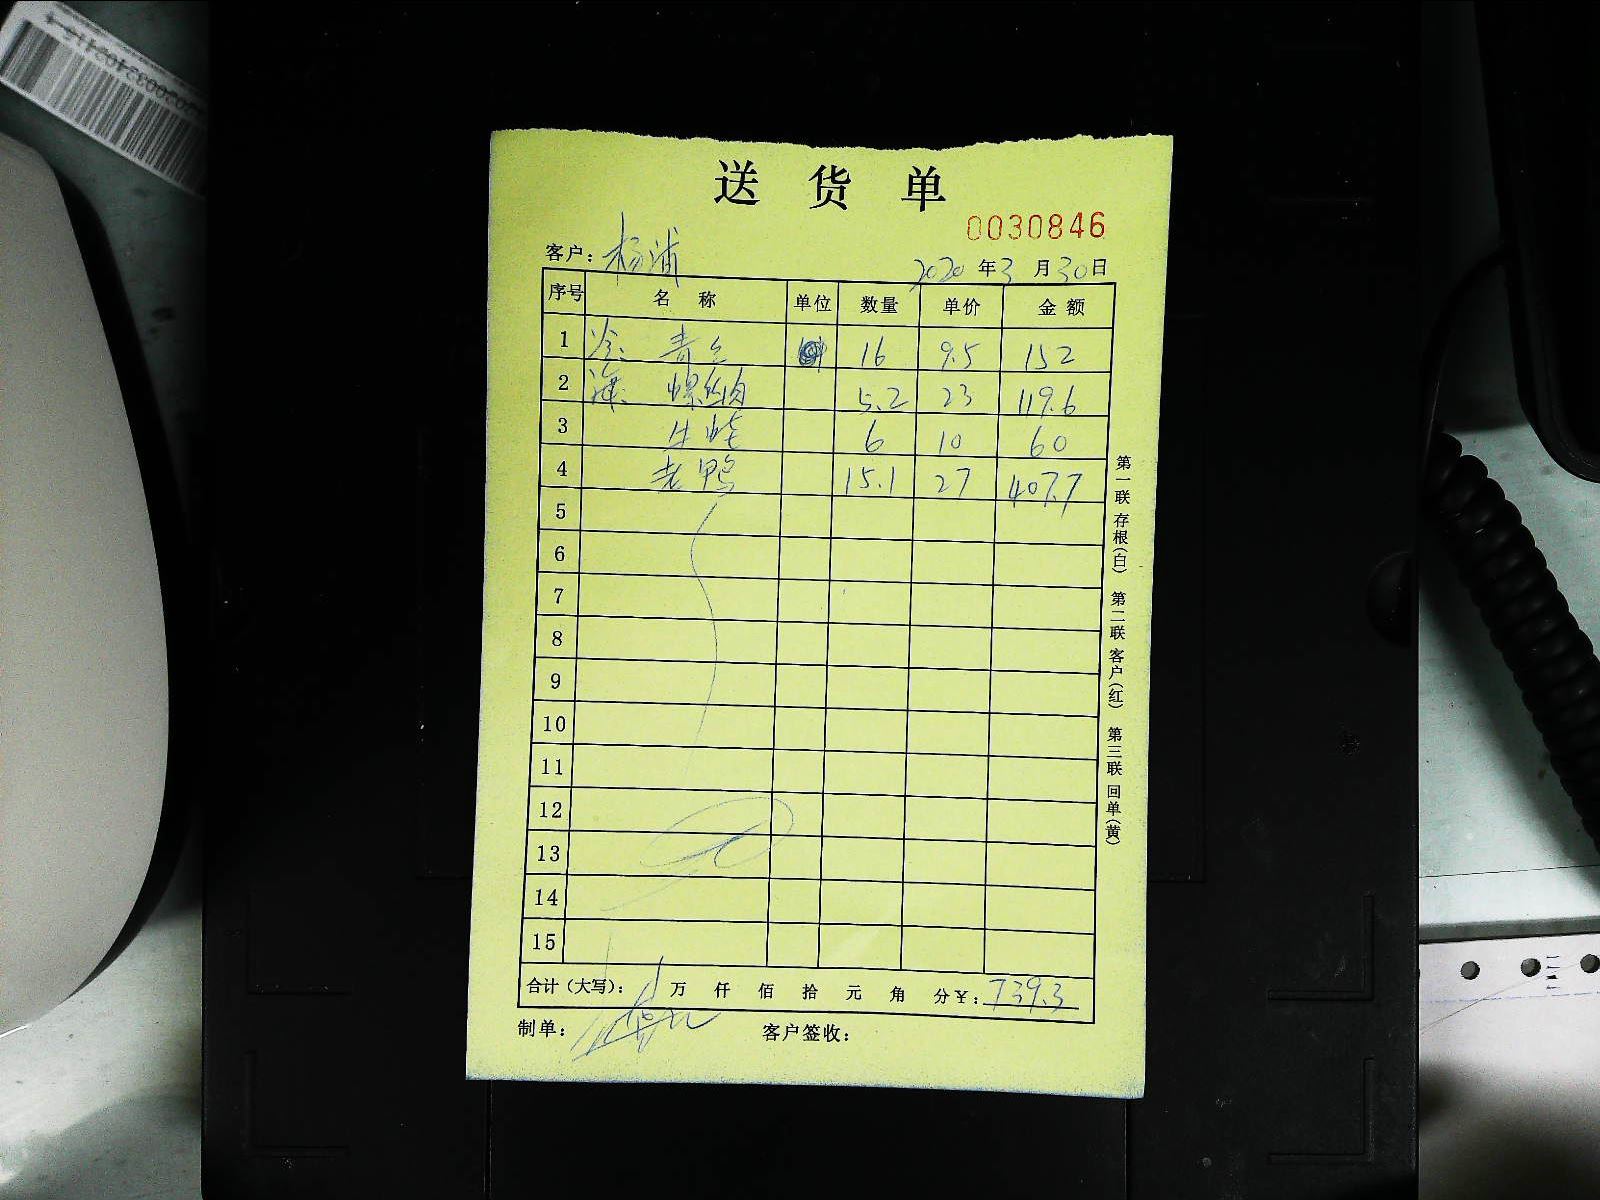 送货单
0030846
客户：杨浦 2020年3月30日
序号 名称 单位 数量 单价 金额
1 冷： 青 16 9.5 152
2 海： 螺 肉 5.2 23 119.6
3 牛蛙 6 10 60
4 老鸭 15.1 27 407.7
5
6
7
8
9
10
11
12
13
14
15
合计（大写）： 万 仟 佰 拾 元 角 分 ￥：739.3
制单： 客户签收：
第一联 存根（白） 第二联 客户（红） 第三联 回单（黄）